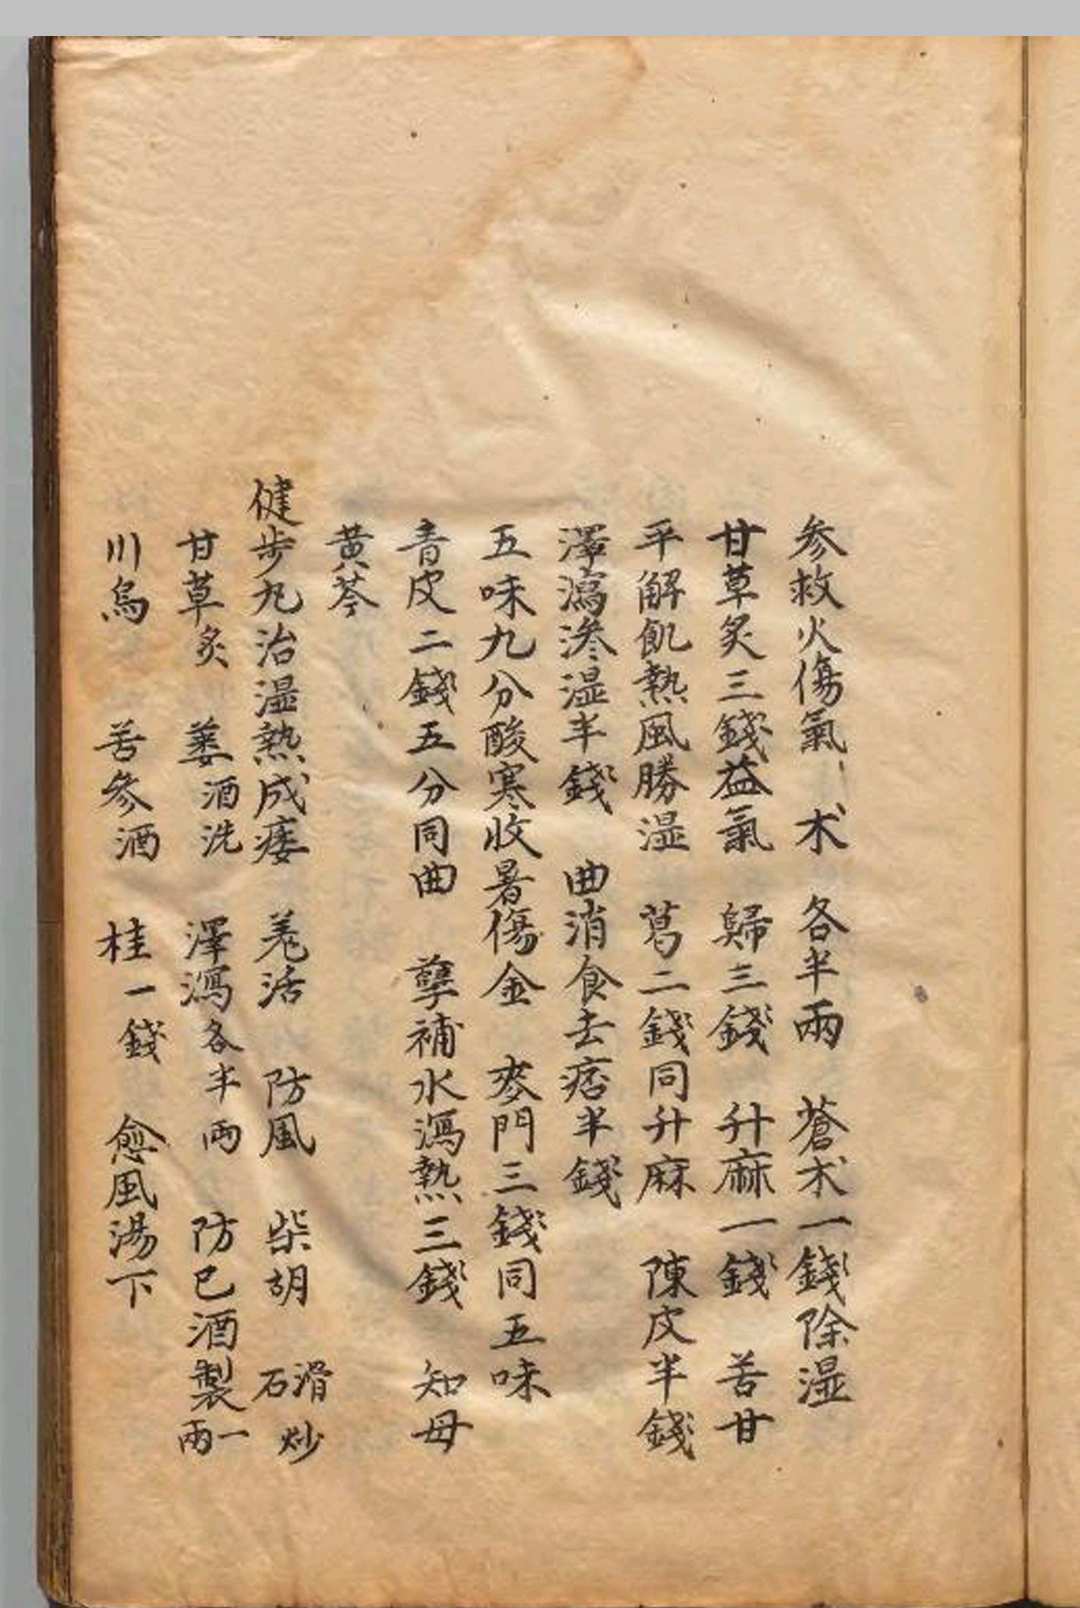 参救火傷氣 朮 各半兩 蒼朮一錢除湿
甘草炙三錢益氣 歸三錢 升麻一錢 苦甘
平解飢熱風勝湿 葛二錢同升麻 陳皮半錢
澤瀉滲湿半錢 曲消食去痞半錢
五味九分酸寒收暑傷金 麥門三錢同五味
青皮二錢五分同曲 蘗補水瀉熱三錢 知母
黄芩
健步丸治湿熱成痿 羗活 防風 柴胡 滑石炒
甘草炙 蔞酒洗 澤瀉各半兩 防已酒製一兩
川烏 苦參酒 桂一錢 愈風湯下